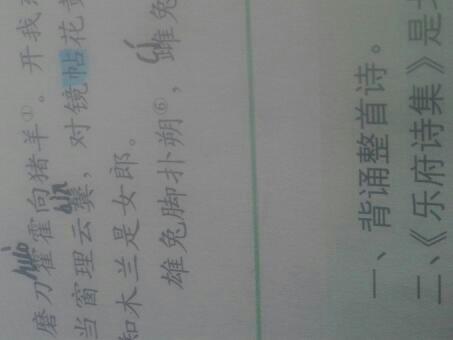 huò
磨刀霍霍向猪羊①。开我
bìn
当窗理云鬓，对镜帖花黄
知木兰是女郎。
cí
雄兔脚扑朔⑥，雌兔
一、背诵整首诗。
二、《乐府诗集》是